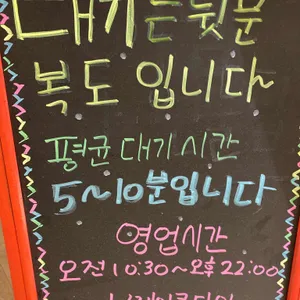 대기는 뒷문
복도 입니다~
평균 대기 시간
5~10분입니다
영업시간
오전 10:30~오후 22:00